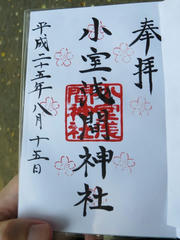 奉拝
小室浅間神社
平成二十五年八月十五日